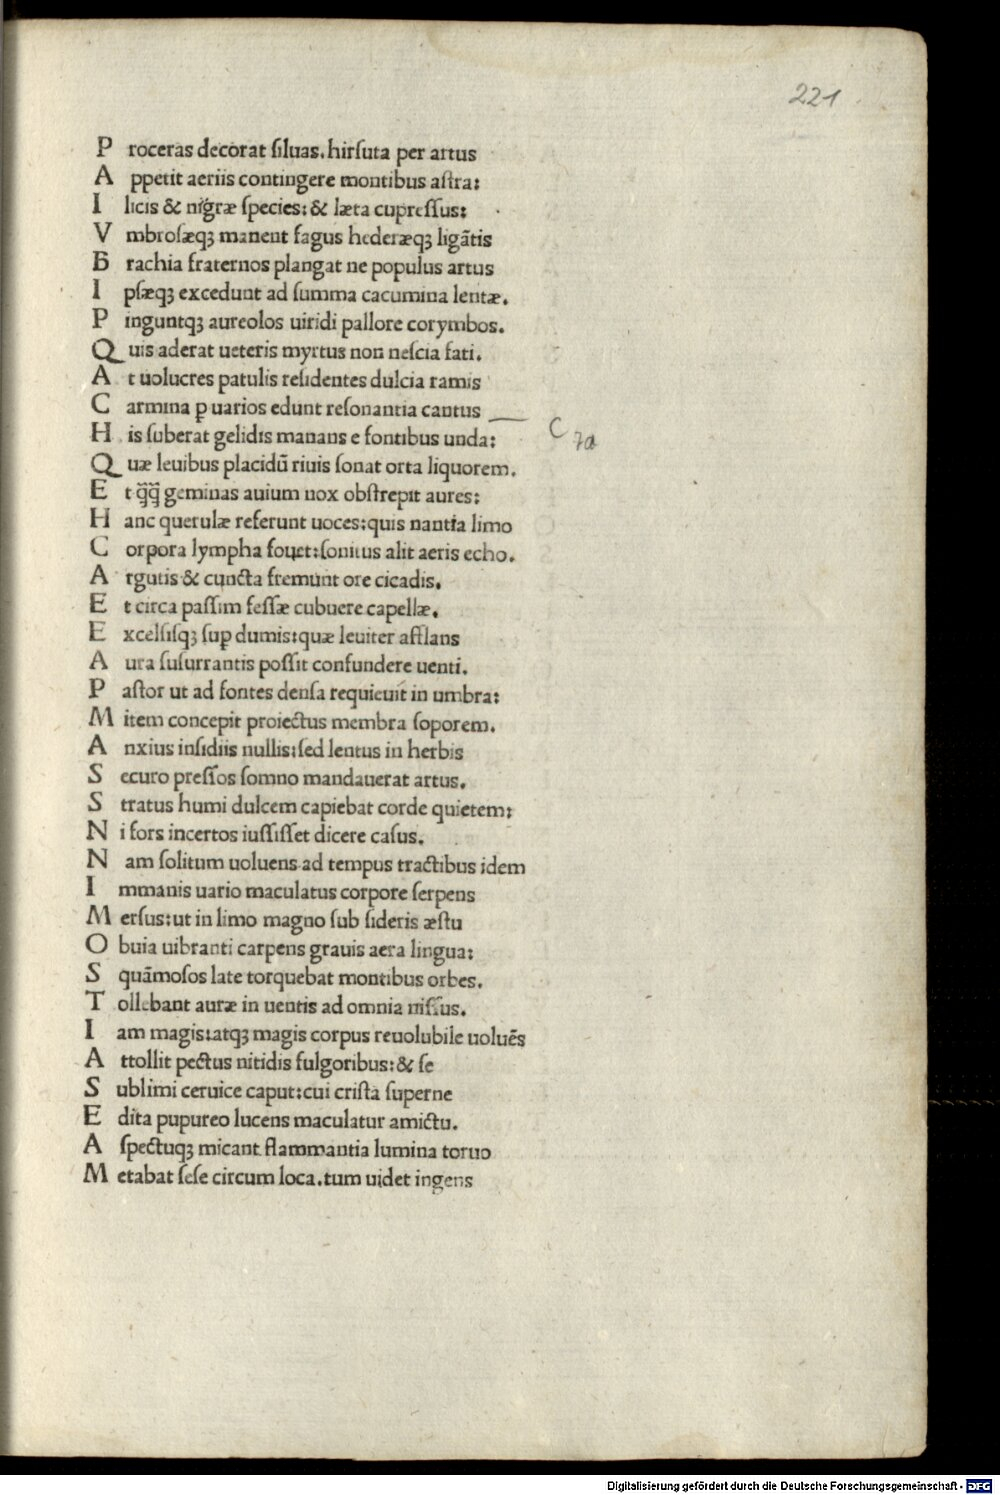 221
P roceras decorat ſiluas.hirſuta per artus
A ppetit aeriis contingere montibus aſtra:
I licis & nigræ ſpecies:& læta cupreſſus:
V mbroſæqꝫ manent fagus hederæqꝫ ligãtis
B rachia fraternos plangat ne populus artus
I pſæqꝫ excedunt ad ſumma cacumina lentæ.
P inguntqꝫ aureolos uiridi pallore corymbos.
Q uis aderat ueteris myrtus non neſcia fati.
A t uolucres patulis reſidentes dulcia ramis
C armina ꝑ uarios edunt reſonantia cantus
H is ſuberat gelidis manans e fontibus unda:
C 7a
Q uæ leuibus placidũ riuis ſonat orta liquorem.
E t q̃q̃ geminas auium nox obſtrepit aures:
H anc querulæ referunt uoces:quis nantia limo
C orpora lympha fouet:ſonitus alit aeris echo.
A rgutis & cuncta fremunt ore cicadis.
E t circa paſſim feſſæ cubuere capellæ.
E xcelſiſqꝫ ſuꝑ dumis:quæ leuiter afflans
A ura ſuſurrantis poſſit confundere uenti.
P aſtor ut ad fontes denſa requieuit in umbra:
M item concepit proiectus membra ſoporem.
A nxius inſidiis nullis:ſed lentus in herbis
S ecuro preſſos ſomno mandauerat artus.
S tratus humi dulcem capiebat corde quietem:
N i fors incertos iuſſiſſet dicere caſus.
N am ſolitum uoluens ad tempus tractibus idem
I mmanis uario maculatus corpore ſerpens
M erſus:ut in limo magno ſub ſideris æſtu
O buia uibranti carpens grauis aera lingua:
S quãmoſos late torquebat montibus orbes.
T ollebant auræ in uentis ad omnia niſſus.
I am magis:atqꝫ magis corpus reuolubile uoluẽs
A ttollit pectus nitidis fulgoribus:& ſe
S ublimi ceruice caput:cui criſta ſuperne
E dita pupureo lucens maculatur amictu.
A ſpectuqꝫ micant flammantia lumina toruo
M etabat ſeſe circum loca.tum uidet ingens
Digitalisierung gefördert durch die Deutsche Forschungsgemeinschaft - DFG